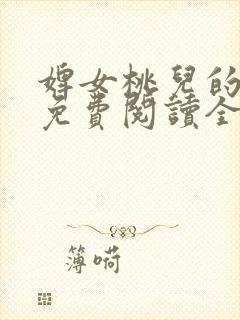 婢女桃兒的
免費閱讀全
簿嗬